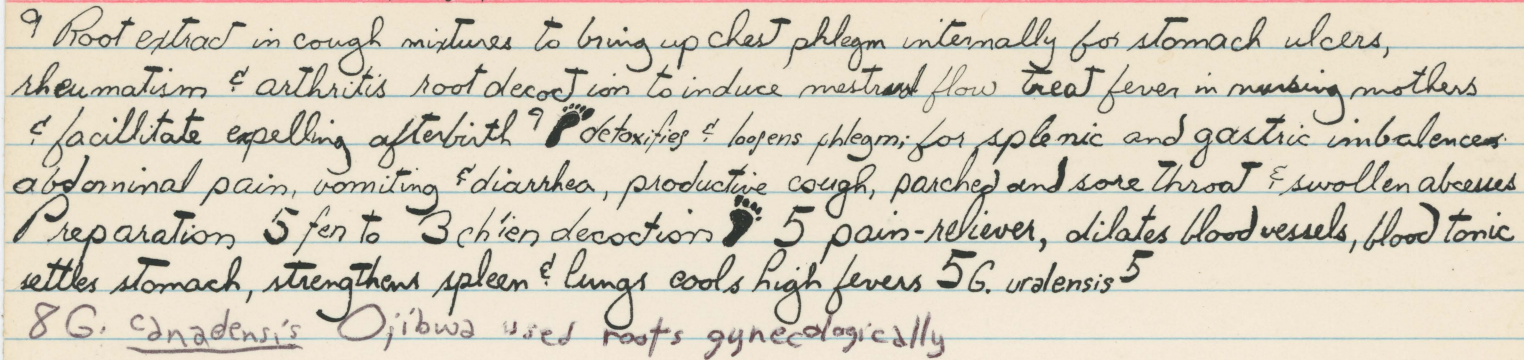 9 Root extract in cough mixtures to bring up chest phlegm internally for stomach ulcers,
rheumatism & arthritis root decoction to induce mestrual flow treat fever in nursing mothers
& facillitate expelling afterbirth 9 detoxifies & loosens phlegm; for splenic and gastric imbalences
abdominal pain, vomiting & diarrhea, productive cough, parched and sore throat & swollen abcesses
Preparation 5 fen to 3 ch'ien decoction 5 pain-reliever, dilates blood vessels, blood tonic
settles stomach, strengthens spleen & lungs cools high fevers 5 G. uralensis 5
8 G. canadensis Ojibwa used roots gynecologically